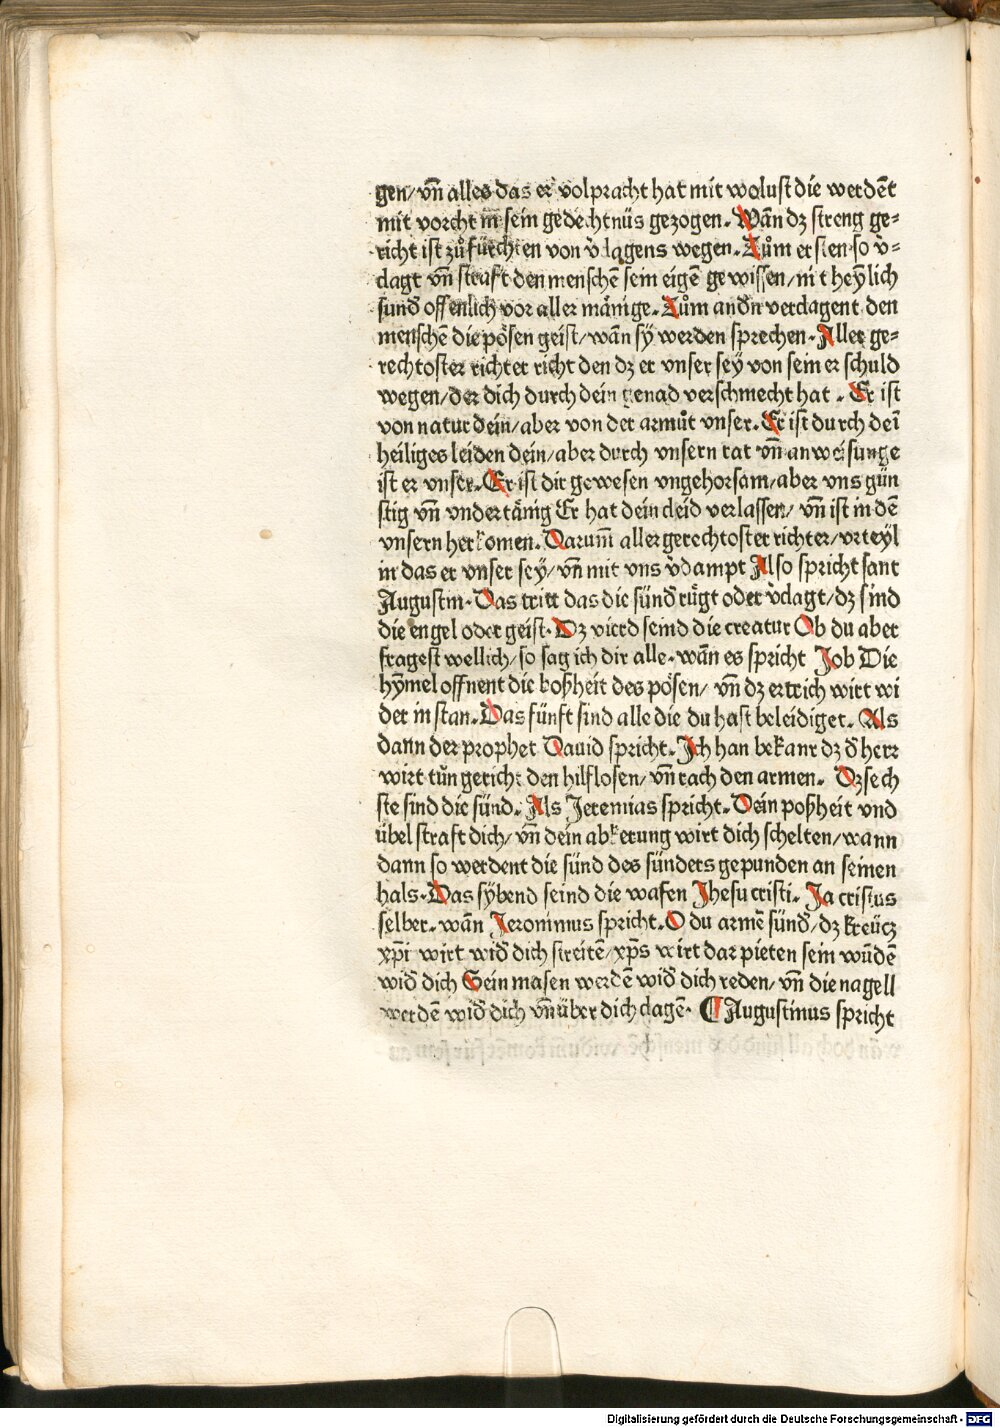 gen/ vn̄ alles das er volpracht hat mit wolust die werdēt
mit vorcht in sein gedechtnüs gezogen. Wān dz streng ge=
richt ist zů fürchten von v̓clagens wegen. Zům ersten so v̓=
clagt vn̄ straft den menschē sein eigē gewissen/ mit heẏlich
sund offenlich vor aller mänige. Zům andn̄ verclagent den
menschē die pösen geist/ wān sy werden sprechen. Aller ge=
rechtoster richter richt den dz er vnser sey von seiner schuld
wegen/ der dich durch dein genad verschmecht hat. Er ist
von natur dein/ aber von der armůt vnser. Er ist durch deī
heiliges leiden dein/ aber durch vnsern rat vn̄ anweisunge
ist er vnser. Er ist dir gewesen vngehorsam/ aber vns gün
stig vn̄ vndertänig Er hat dein cleid verlassen/ vn̄ ist in dē
vnsern herkomen. Darum̄ aller gerechtoster richter/ vrteyl
in das er vnser sey/ vn̄ mit vns v̓dampt Also spricht sant
Augustin. Das tritt das die sünd rügt oder v̓clagt/ dz sind
die engel oder geist. Dz vierd seind die creatur Ob du aber
fragest wellich/ so sag ich dir alle. wān es spricht Job Die
hẏmel offnent die boßheit des pösen/ vn̄ dz ertrich wirt wi
der in stan. Das fünft sind alle die du hast beleidiget. Als
dann der prophet Dauid spricht. Ich han bekant dz d̓ herr
wirt tůn gericht den hilflosen/ vn̄ rach den armen. Dz sech
ste sind die sünd. Als Jeremias spricht. Dein poßheit vnd
übel straft dich/ vn̄ dein abkerung wirt dich schelten/ wann
dann so werdent die sünd des sünders gepunden an seinen
hals. Das sybend seind die wafen Jhesu cristi. Ja cristus
selber. wān Jeronimus spricht. O du armē sünd̓/ dz kreücz
xp̄i wirt wid̓ dich streitē/ xp̄s wirt dar pieten sein wūdē
wid̓ dich Sein masen werdē wid̓ dich reden/ vn̄ die nagell
werdē wid̓ dich vn̄ über dich clagē. ¶ Augustinus spricht
Digitalisierung gefördert durch die Deutsche Forschungsgemeinschaft - DFG